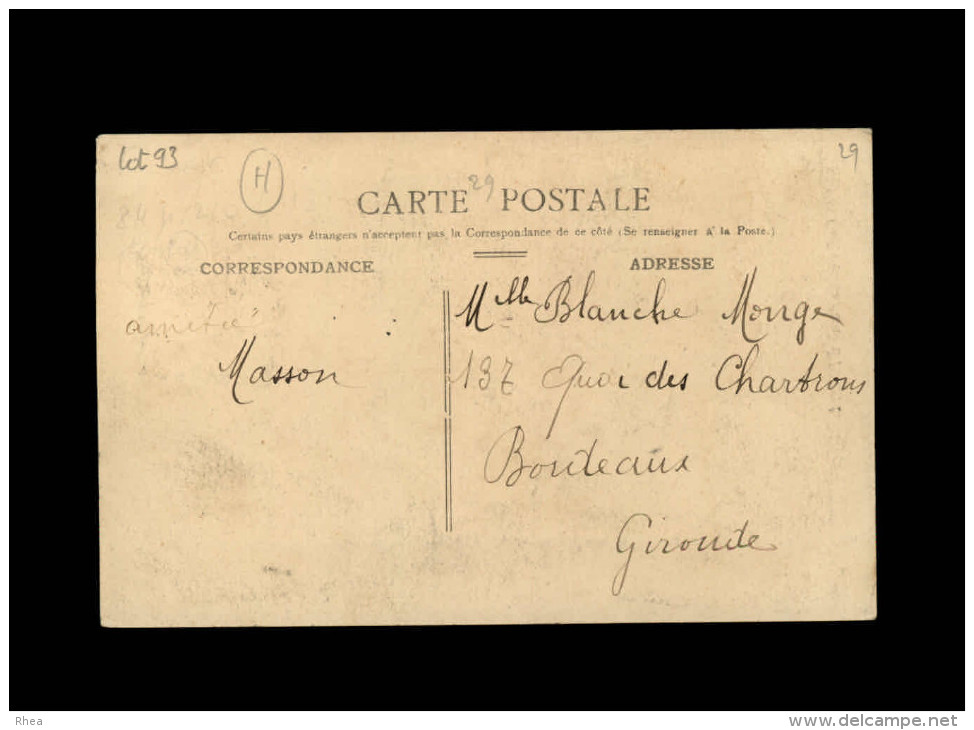 lot 93
H
29
29
CARTE POSTALE
Certains pays étrangers n'acceptent pas la Correspondance de ce côté (Se renseigner à la Poste.)
CORRESPONDANCE
ADRESSE
Masson
Mlle Blanche Monge
137 Quai des Chartrons
Bordeaux
Gironde
Rhea
www.delcampe.net